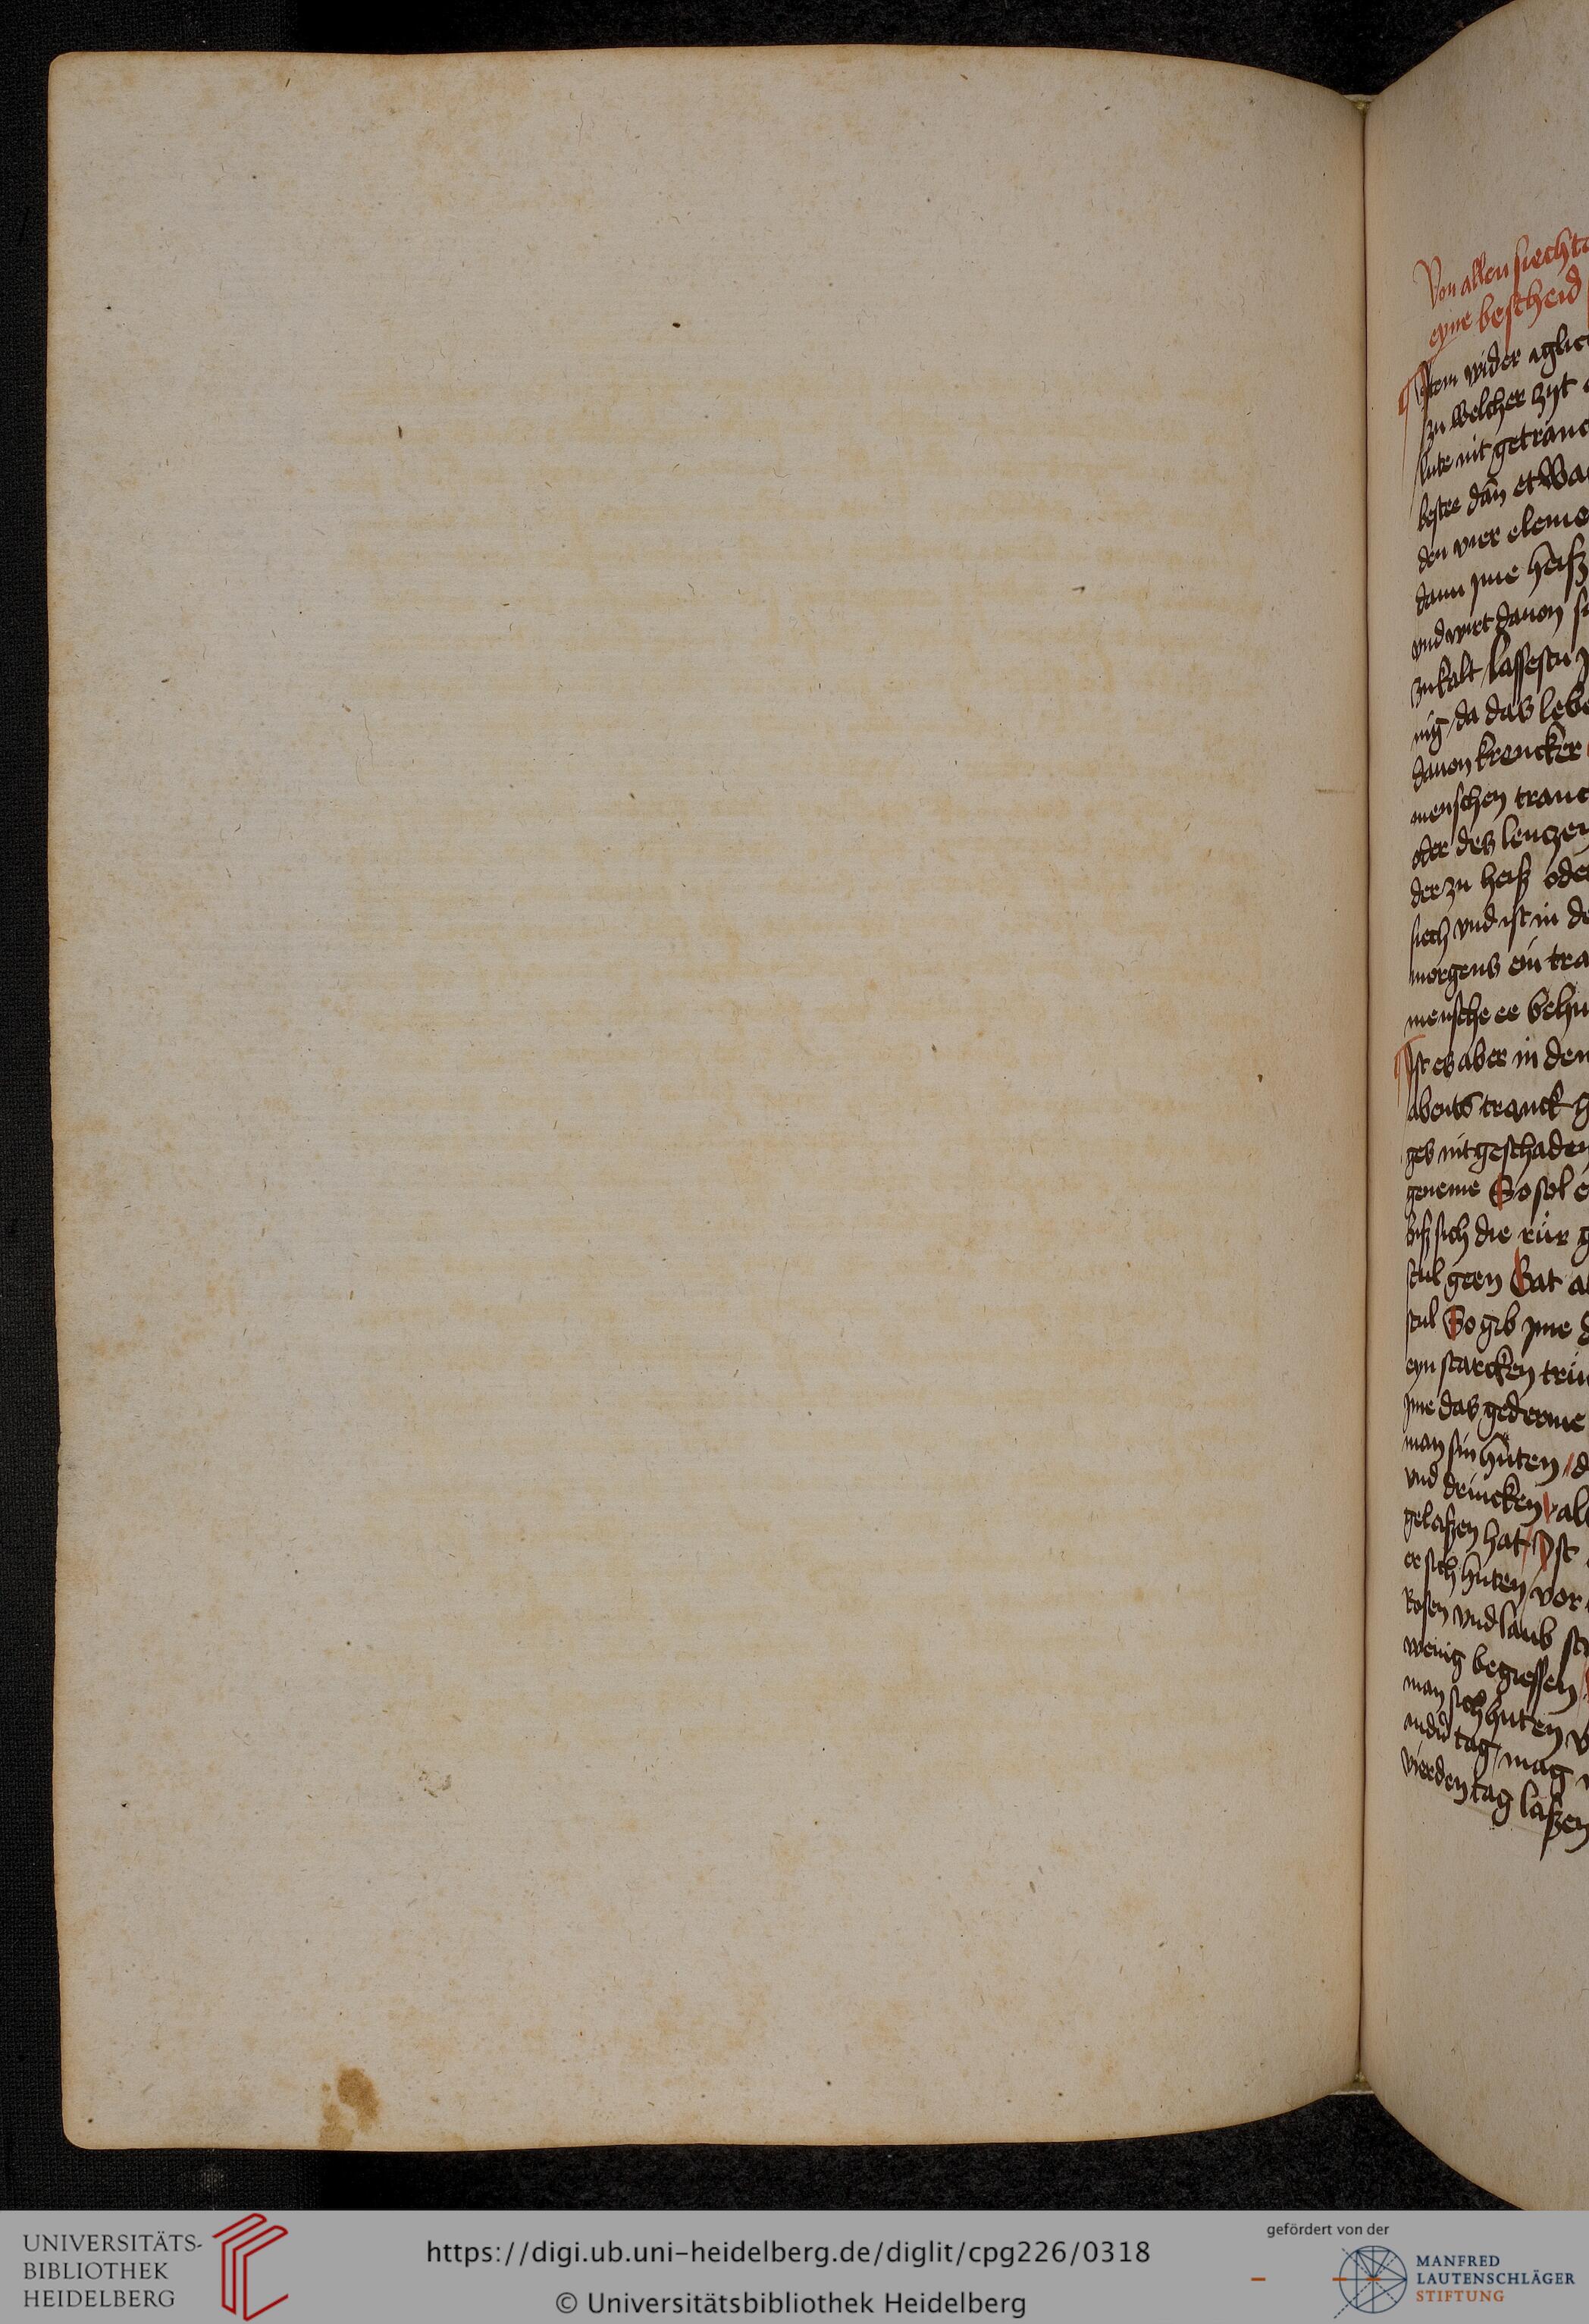 Von allen siecht
eyne bescheid
Item wider iglic
zu welcher zyt
lute nit getranc
bestee dan etwa
den vier eleme
dann yme heiß
vnd wirt dauon
zukalt lassestu
nig da das lebe
dauon krencker
menschen tranc
oder des lenczen
der zu heiß oder
siech vnd ist in de
morgens ein tra
mensche er behu
Ist es aber in den
abents tranck g
ges nit geschaden
geneme So sol e
biß sich die rür g
stul geen Gat a
stul So gib yme d
eyn starcken trün
yme das gederme
man sin huten d
vnd drincken als
gelaßen hat Ist
er sich huten vor
Rosen vnd laub st
wenig begiessen
man sich huten v
tag mag
vierden tag laßen
UNIVERSITÄTS-
BIBLIOTHEK
HEIDELBERG
https://digi.ub.uni-heidelberg.de/diglit/cpg226/0318
© Universitätsbibliothek Heidelberg
gefördert von der
MANFRED
LAUTENSCHLÄGER
STIFTUNG